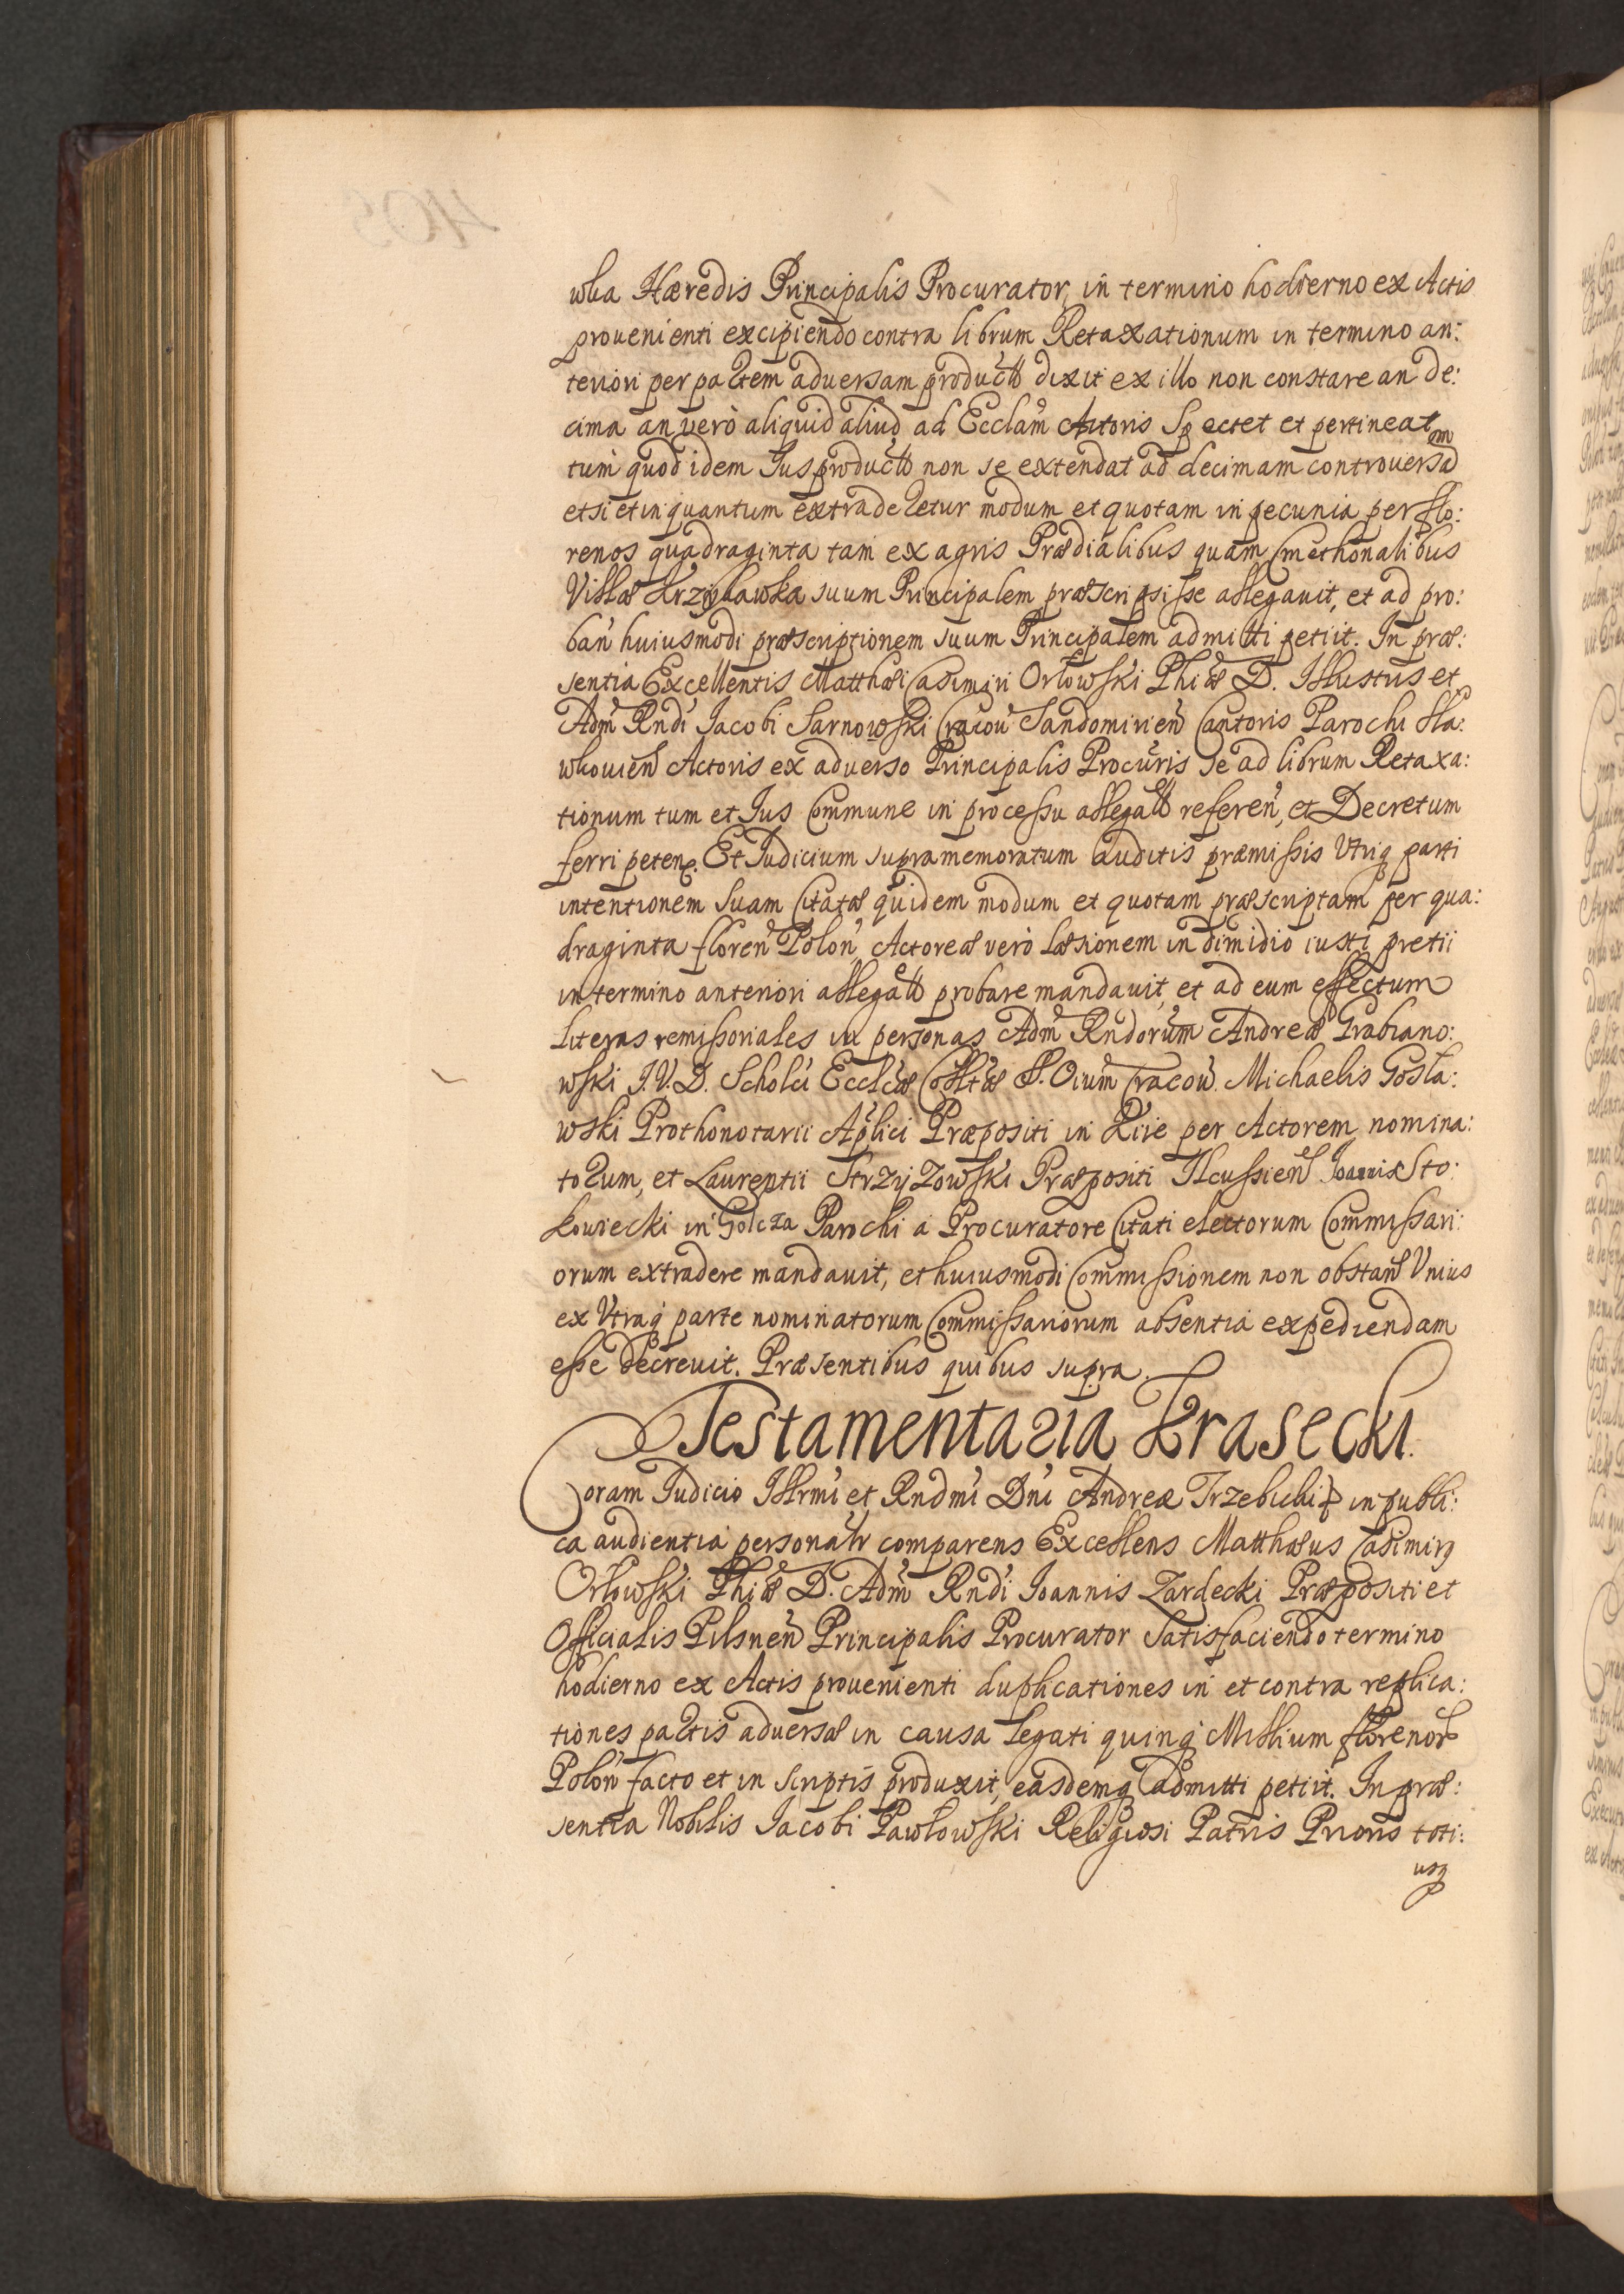 wka Hæredis Principalis Procurator, in termino hodierno ex Actis
prouenienti excipiendo contra librum Retaxationum in termino an:
teriori per partem aduersam product dixit ex illo non constare an de:
cima an verò aliquid aliud ad Ecclãm Actoris Spectet et pertineat
tum quod idem Jus product non se extendat ad decimam controuersam
etsi et in quantum extraderetur modum et quotam in pecunia per flo:
renos quadraginta tam ex agris Prædialibus quam Cmethonalibus
Villæ Krzykawka suum Principalem præscripsisse allegauit, et ad pro:
ban̄ huiusmodi præscriptionem suum Principalem admitti petiit. In præ:
sentia Excellentis Matthæi Casimiri Orłowski Phiæ D. Illustris et
Adm̃ Rndi Jacobi Sarnowski Cracou Sandomirien̄ Cantoris Parochi Sla:
wkouien Actoris ex aduerso Principalis Procuris se ad librum Retaxa:
tionum tum et Jus Commune in processu allegat referen̄, et Decretum
ferri peten. Et Judicium supramemoratum auditis præmissis Vtriq parti
intentionem suam Citatæ quidem modum et quotam præscriptam per qua:
draginta floren̄ Polon̄ Actoreæ verò læsionem in dimidio iusti pretii
in termino anteriori allegat probare mandauit, et ad eum effectum
literas remissoriales in personas Adm̃ Rndorum Andreæ Grabiano:
wski J.V.D. Scholci Ecclæ Colltæ S. Oium Cracou. Michaelis Gosła:
wski Prothonotarii Aplici Præpositi in Kiie per Actorem nomina:
torum, et Laurentii Strzyżowski Præpositi Ilcussien Joannis Sto:
kowiecki in Golcza Parochi à Procuratore Citati electorum Commissari:
orum extradere mandauit, et huiusmodi Commissionem non obstan Vnius
ex Vtraq parte nominatorum Commissariorum absentia expediendam
esse decreuit. Præsentibus quibus supra.
Testamentaria Krasecki.
Coram Judicio Illrmi et Rndmi Dni Andreæ Trzebicki in publi:
ca audientia personalr comparens Excellens Matthæus Casimirg
Orłowski Phiæ D. Adm̃ Rndi Joannis Zardecki Præpositi et
Officialis Pilsnen̄ Principalis Procurator Satisfaciendo termino
hodierno ex Actis prouenienti duplicationes in et contra replica:
tiones partis aduersæ in causa legati quinq Millium florenor
Polon̄ facto et in scriptis produxit, easdemq admitti petiit. In præ:
sentia Nobilis Jacobi Pawłowski Religiosi Patris Prioris toti:
usq